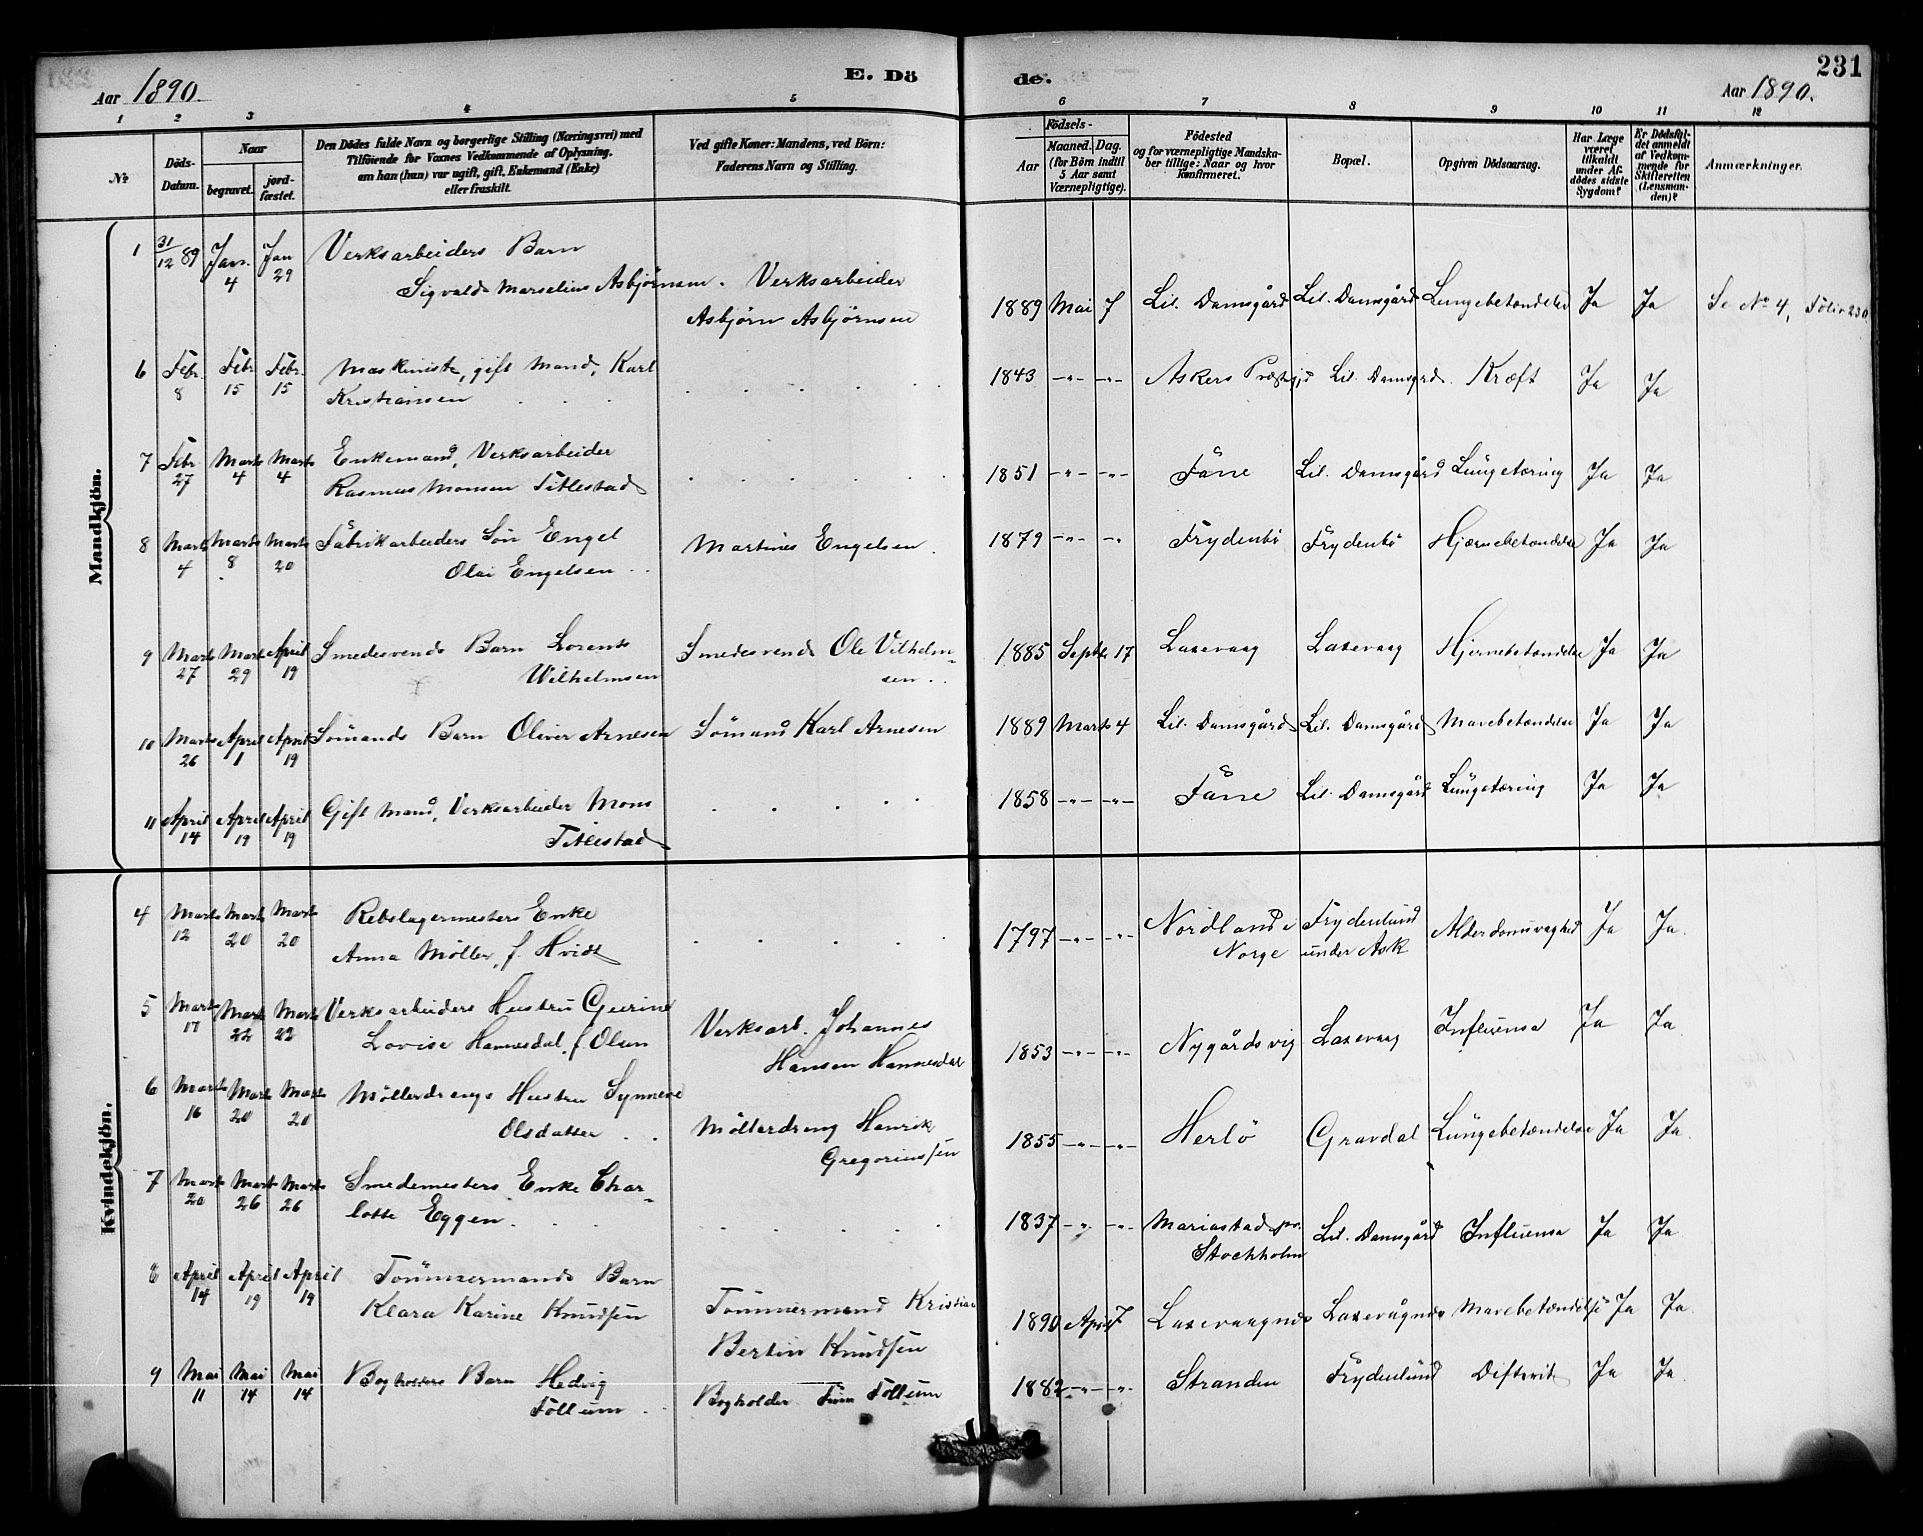 Aar 1890.
E. Dö
de.
231
Aar 1890.
1 2 3 4 5 6 7 8 9 10 11 12
№
Döds-Datum.
Naar
begravet.
jord-fæstet.
Den Dödes fulde Navn og borgerlige Stilling (Næringsvei) med
Tilföiende for Voxnes Vedkommende af Oplysning,
om han (hun) var ugift, gift, Enkemand (Enke)
eller fraskilt.
Ved gifte Koner: Mandens, ved Börn:
Faderens Navn og Stilling.
Födsels-
Aar
Maaned. Dag.
(for Börn indtil
5 Aar samt
Værnepligtige).
Födested
og for værnepligtige Mandska-
ber tillige: Naar og hvor
konfirmeret.
Bopæl.
Opgiven Dödsaarsag.
Har Læge
været
tilkaldt
under Af-
dödes sidste
Sygdom?
Er Dödsfal-
det anmeldt
af Vedkom-
mende for
Skifteretten
(Lensman-
den)?
Anmærkninger.
Mandkjön.
1 31/12 89 Jan. 4 Jan 29 Verksarbeiders Barn
Sigvald Marselius Asbjørnsen. Verksarbeider
Asbjørn Asbjørnsen
1889 Mai 7 Lil. Damsgård Lil. Damsgård Lungebetændelse Ja Ja Se No 4, Folio 230
6 Febr. 8 Febr 15 Febr. 15 Maskinist, gift Mand, Karl
Kristiansen
1843 -"- -"- Askers Præstegj Lil. Damsgrd. Kræft Ja Ja
7 Febr 27 Marts 4 Marts 4 Enkemand, Verksarbeider
Rasmus Monsen Titlestad
1851 -"- -"- Fane Lil. Damsgård Lungetæring Ja Ja
8 Marts 4 Marts 8 Marts 20 Fabrikarbeiders Søn Engel
Olai Engelsen
Martines Engelsen.
1879 -"- -"- Frydenbø Frydenbø Hjærnebetændelse Ja Ja
9 Marts 27 Marts 29 April 19 Smedesvends Barn Lorents
Wilhelmsen
Smedesvend Ole Vilhelm-
sen
1885 Septbr 17 Laxevaag Laxevaag Hjernebetændelse Ja Ja
10 Marts 26 April 1 April 19 Sømands Barn Oliver Arnesen Sømand Karl Arnesen
1889 Marts 4 Lil. Damsgård Lil. Damsgård Mavebetændelse Ja Ja
11 April 14 April 19 April 19 Gift Mand, Verksarbeider Mons
Titlestad
1858 -"- -"- Fane Lil. Damsgård Lungetæring Ja Ja
Kvindekjön.
4 Marts 12 Marts 20 Marts 20 Rebslagermesters Enke
Anna Møller, f. Hvidt
1797 -"- -"- Nordland i Norge Frydenlund under Ask Alderdomsvaghed Ja Ja.
5 Marts 17 Marts 22 Marts 22 Verksarbeiders Hustru Guerine
Lovise Hannesdal, f. Olsen
Verksarb. Johannes
Hansen Hannesdal
1853 -"- -"- Nygårdsvig Laxevaag Influensa Ja Ja.
6 Marts 16 Marts 20 Marts 20 Møllerdrengs Hustru Synneve
Olsdatter
Møllerdreng Henrik
Gregoriussen
1855 -"- -"- Herlø Gravdal Lungebetændelse Ja Ja.
7 Marts 20 Marts 26 Marts 26 Smedemesters Enke Char-
lotte Eggen.
1837 -"- -"- Mariastad pr. Stochholm Lil. Damsgård Influensa Ja Ja
8 April 14 April 19 April 19 Tømmermands Barn
Klara Karine Knudsen
Tømmermand Kristian
Bertin Knudsen
1890 April 7 Laxevaagnæs Laxevågnæs Mavebetændelse Ja Ja.
9 Mai 11 Mai 14 Mai 14 Bogholders Barn Hedvig
Follum
Bogholder Follum
1882 -"- -"- Stranden Frydenlund Difterit Ja Ja.